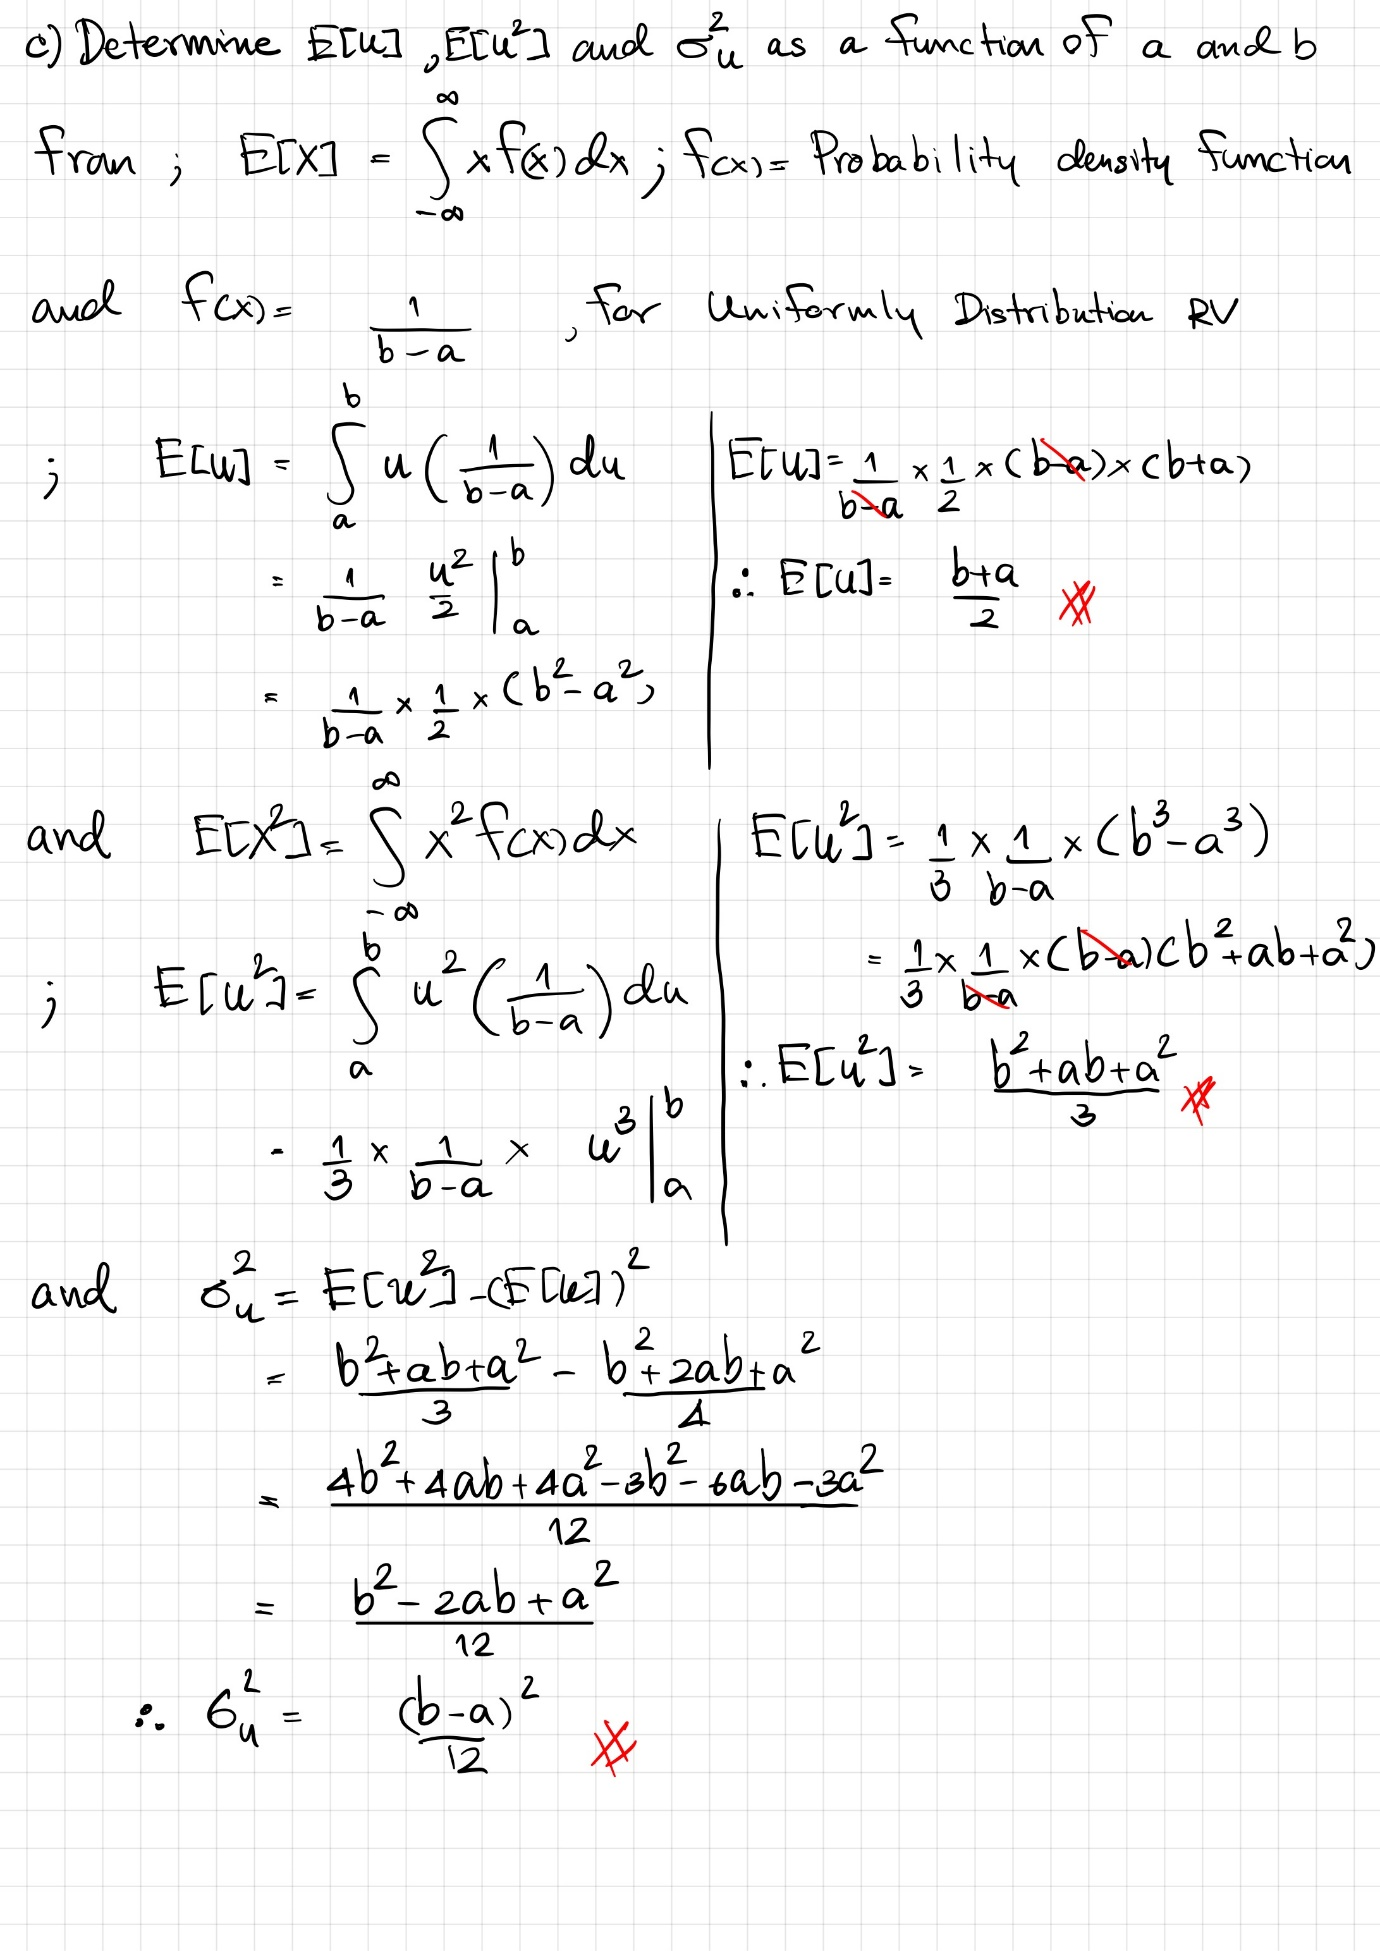 c) Determine E[u], E[u²] and σ²ᵤ as a function of a and b
fran ; E[X] = ∫_{-∞}^{∞} x f(x) dx ; f(x) = Probability density function
and f(x) = 1/(b-a) , for Uniformly Distribution RV
; E[u] = ∫_a^b u (1/(b-a)) du
= 1/(b-a) u²/2 |_a^b
= 1/(b-a) × 1/2 × (b² - a²)
E[u] = 1/(b-a) × 1/2 × (b-a) × (b+a)
∴ E[u] = (b+a)/2
and E[X²] = ∫_{-∞}^{∞} x² f(x) dx
; E[u²] = ∫_a^b u² (1/(b-a)) du
= 1/3 × 1/(b-a) × u³ |_a^b
E[u²] = 1/3 × 1/(b-a) × (b³ - a³)
= 1/3 × 1/(b-a) × (b-a)(b² + ab + a²)
∴ E[u²] = (b² + ab + a²)/3
and σ²ᵤ = E[u²] - (E[u])²
= (b² + ab + a²)/3 - (b² + 2ab + a²)/4
= (4b² + 4ab + 4a² - 3b² - 6ab - 3a²)/12
= (b² - 2ab + a²)/12
∴ σ²ᵤ = (b-a)²/12